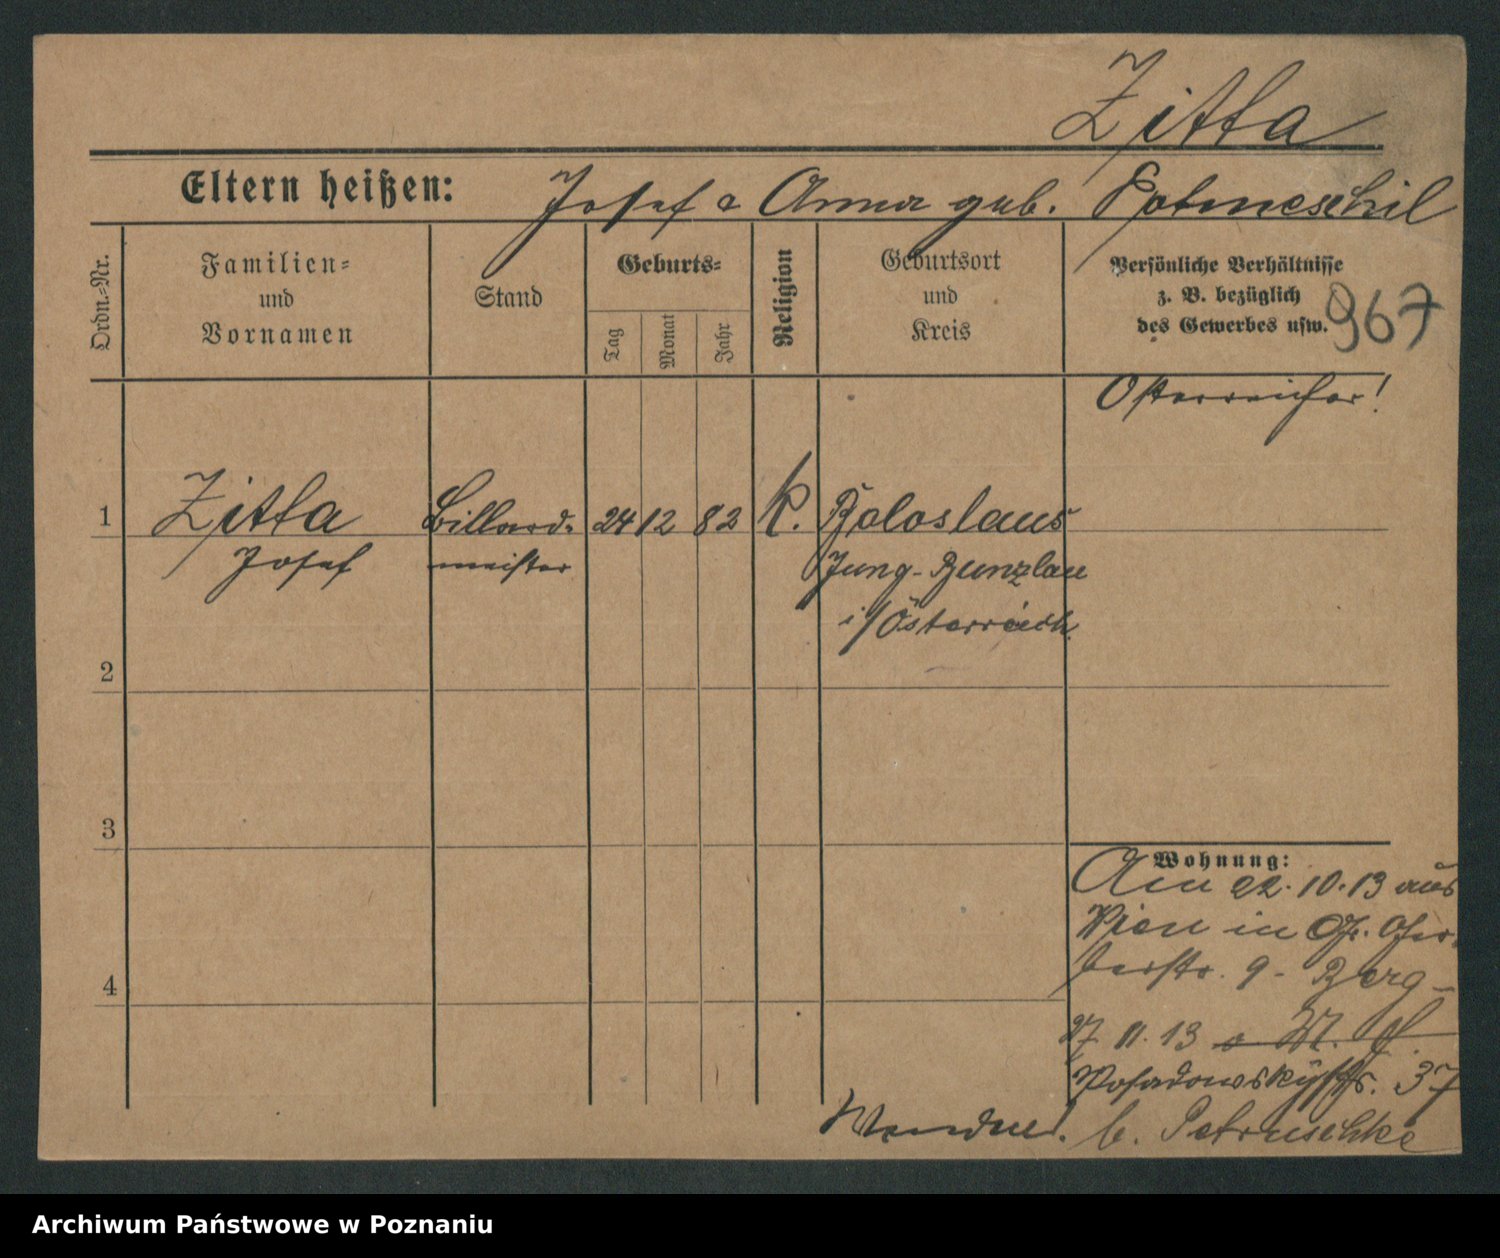 Zitta
Eltern heißen: Josef & Anna geb. Potmeschil
Ordn.-Nr.
Familien-
und
Vornamen
Stand
Geburts-
Tag
Monat
Jahr
Religion
Geburtsort
und
Kreis
Persönliche Verhältnisse
z. B. bezüglich
des Gewerbes usw.
967
Österreicher!
1 Zitta Billard- 24 12 82 k. Boloslaus
Josef meister Jung-Bunzlau
i/Österreich
2
3
4
Wohnung:
Am 22.10.13 aus
Wien in Gr. Ger-
berstr. 9 - Berg -
27 11. 13
Posadowskystr. 37
Wenden! b. Petruschke
Archiwum Państwowe w Poznaniu